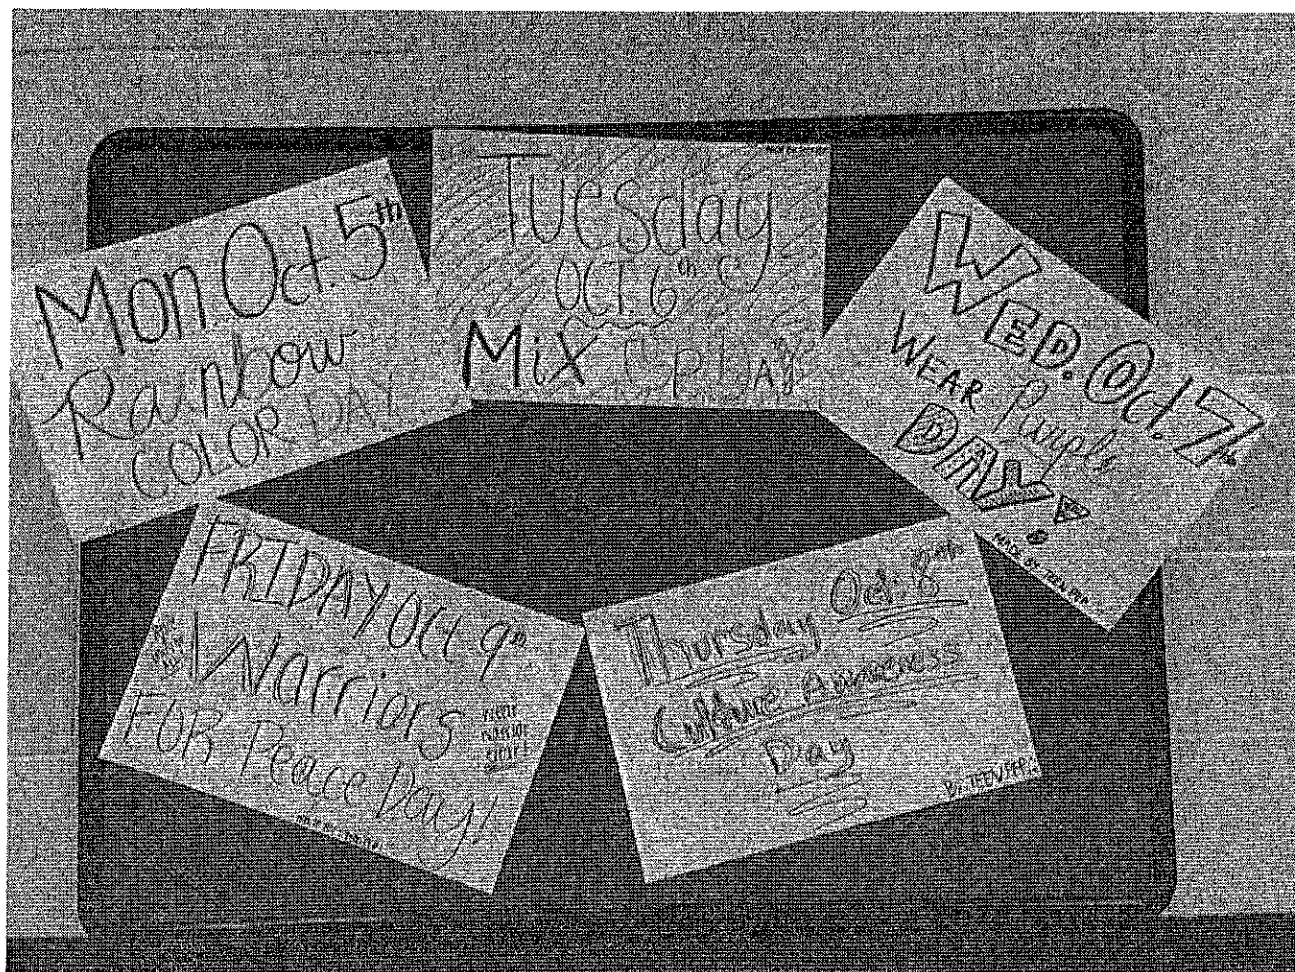 Mon. Oct. 5th
Rainbow
COLOR DAY
Tuesday
OCT. 6th
Mix UP DAY
WED. Oct. 7th
WEAR Purple
DAY!
FRIDAY Oct 9th
Warriors
FOR Peace Day!
WEAR
WARRIOR
GEAR!
Thursday Oct. 8th
Culture Awareness
Day